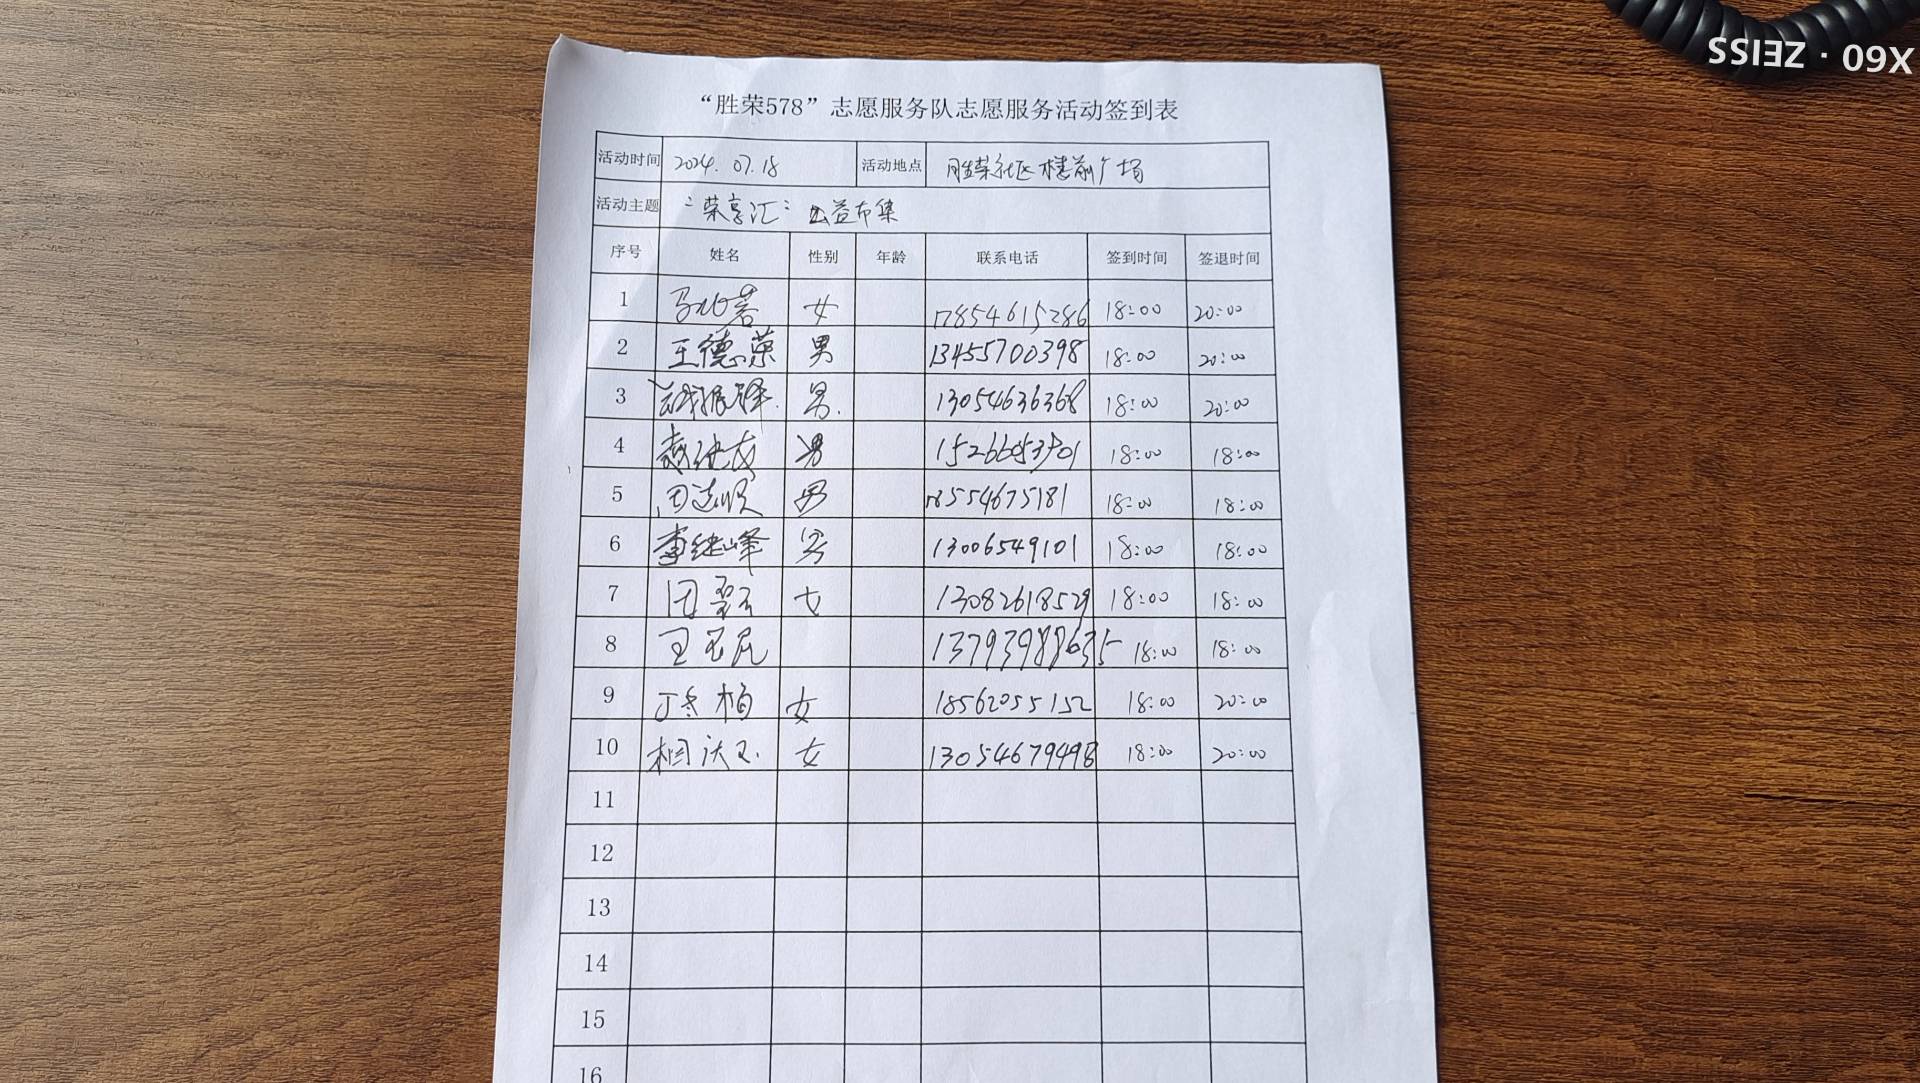 X60 · ZEISS
“胜荣578”志愿服务队志愿服务活动签到表
活动时间 2024.07.18 活动地点 胜荣社区楼前广场
活动主题 “荣享汇”公益市集
序号 姓名 性别 年龄 联系电话 签到时间 签退时间
1 女 17854615286 18:00 20:00
2 王德荣 男 13455700398 18:00 20:00
3 男 13054636368 18:00 20:00
4 男 18:00 18:00
5 男 18554675181 18:00 18:00
6 李继峰 男 13006549101 18:00 18:00
7 女 13082618529 18:00 18:00
8 13793988635 18:00 18:00
9 丁冬梅 女 18562055152 18:00 20:00
10 女 13054679498 18:00 20:00
11
12
13
14
15
16